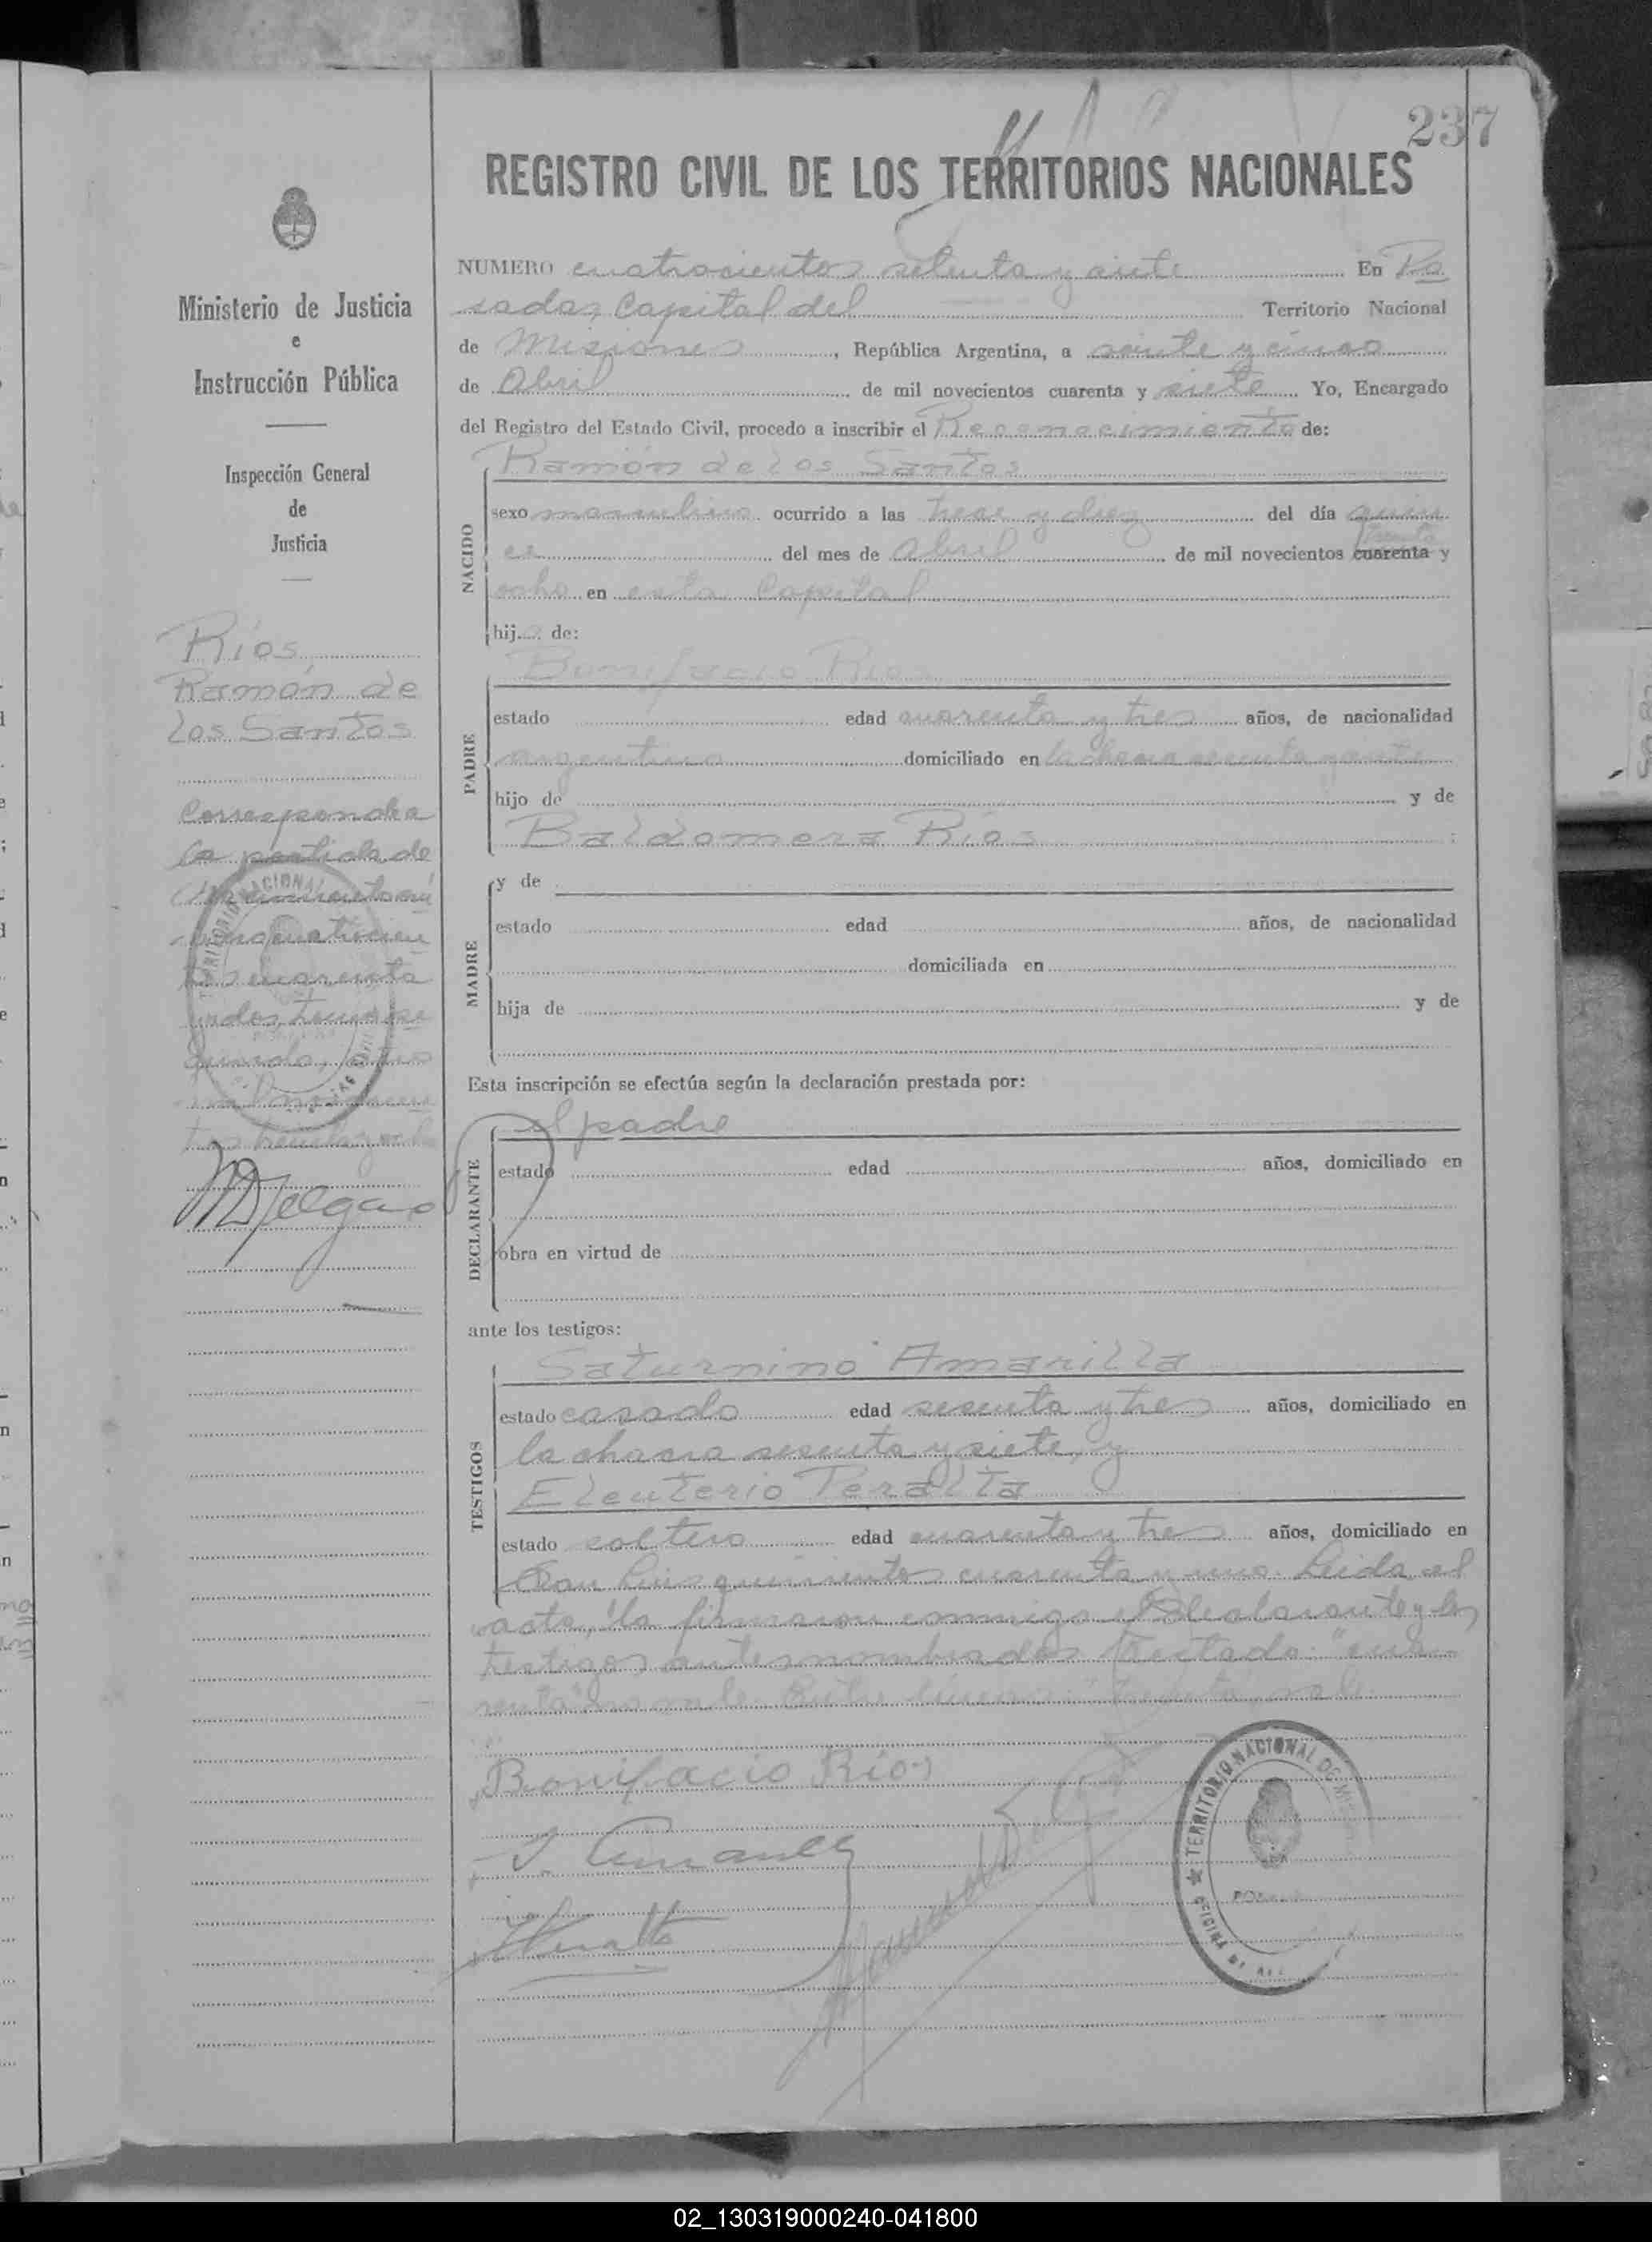 237
REGISTRO CIVIL DE LOS TERRITORIOS NACIONALES
Ministerio de Justicia
e
Instrucción Pública
Inspección General
de
Justicia
Ríos,
Ramón de
los Santos
Corresponde a
la partida de
cuarenta
mil novecien
tos treinta y ocho
NUMERO cuatrocientos setenta y siete En Po
sadas, Capital del Territorio Nacional
de Misiones, República Argentina, a veinte y cinco
de Abril de mil novecientos cuarenta y siete Yo, Encargado
del Registro del Estado Civil, procedo a inscribir el Reconocimiento de:
Ramón de los Santos
NACIDO
sexo masculino ocurrido a las trece y diez del día quin
ce del mes de Abril de mil novecientos cuarenta y
treinta
ocho en esta Capital
hijo de:
Bonifacio Ríos
PADRE
estado edad cuarenta y tres años, de nacionalidad
argentino domiciliado en la chacra sesenta y siete
hijo de y de
Baldomera Ríos
MADRE
y de
estado edad años, de nacionalidad
domiciliada en
hija de y de
Esta inscripción se efectúa según la declaración prestada por:
el padre
DECLARANTE
estado edad años, domiciliado en
obra en virtud de
ante los testigos:
TESTIGOS
Saturnino Amarilla
estado casado edad sesenta y tres años, domiciliado en
la chacra sesenta y siete, y
Eleuterio Peralta
estado soltero edad cuarenta y tres años, domiciliado en
San Luis quinientos cuarenta y uno. Leida el
acta, la firmaron conmigo el declarante y los
testigos antes nombrados. Testado: "cua
renta" no vale. "treinta" vale.
Bonifacio Ríos
TERRITORIO NACIONAL DE
02_130319000240-041800